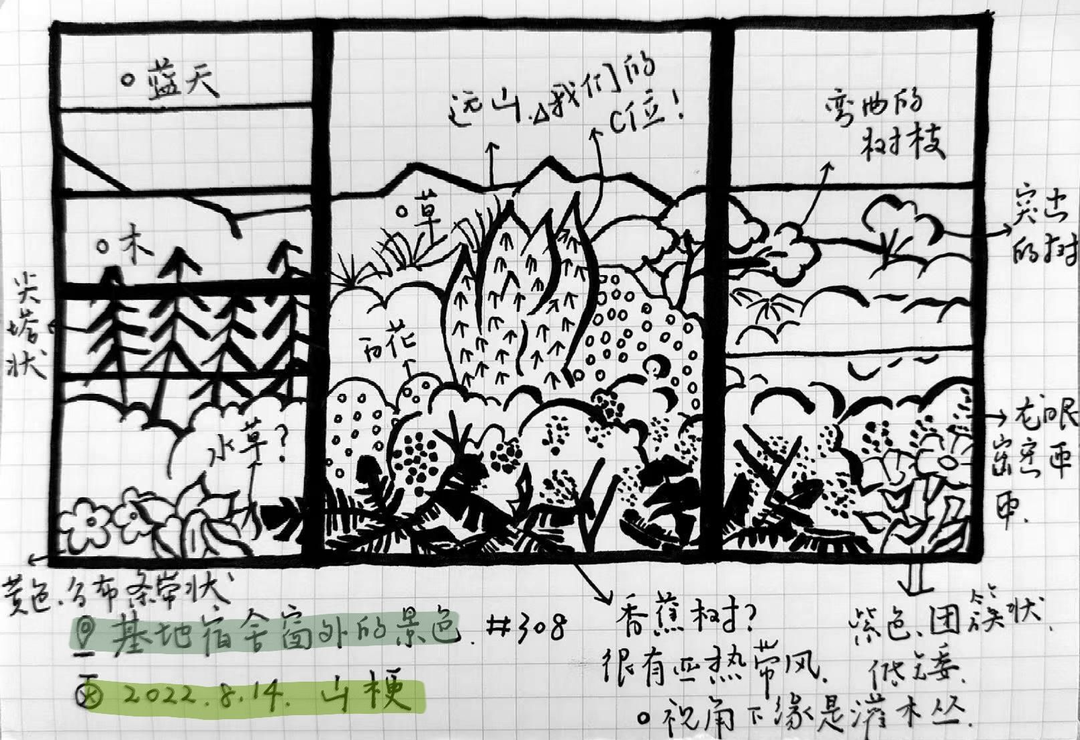 蓝天
远山.△我们的
C位!
弯曲的
树枝
草
木
突出
的树
尖
塔
状
白花
水草?
龙眼
密密匝
匝.
黄色.分布条带状
基地宿舍窗外的景色. #308
2022.8.14. 山梗
香蕉树?
很有亚热带风.
视角下缘是灌木丛.
紫色.团簇状.
低矮.